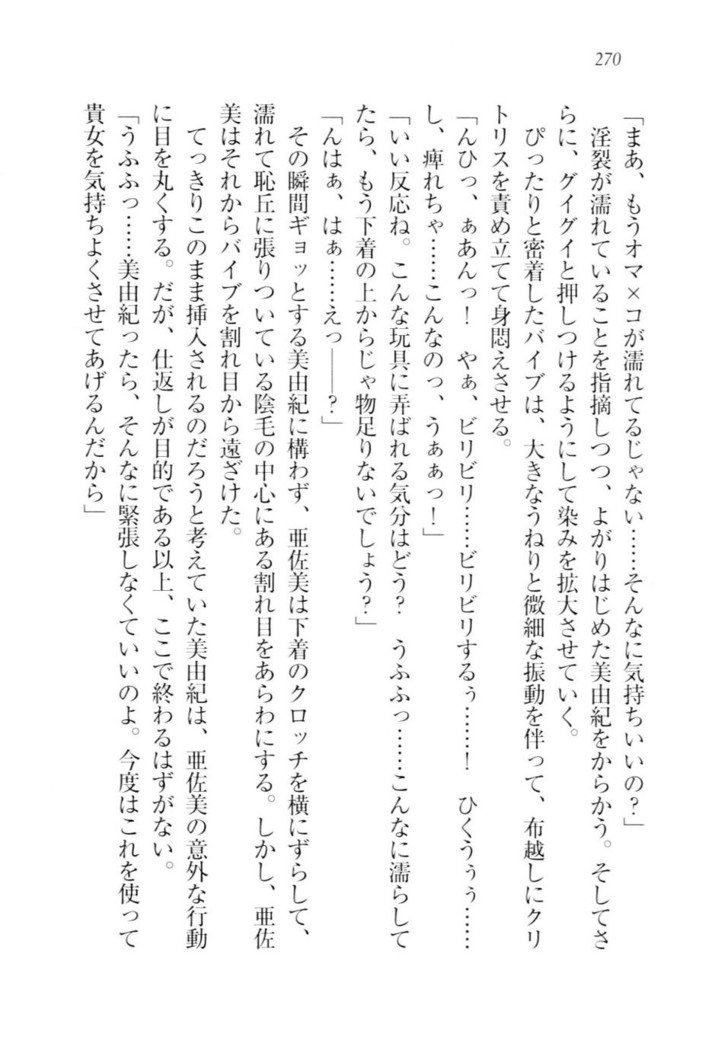 270
「まあ、もうオマ×コが濡れてるじゃない……そんなに気持ちいいの？」
淫裂が濡れていることを指摘しつつ、よがりはじめた美由紀をからかう。そしてさ
らに、グイグイと押しつけるようにして染みを拡大させていく。
ぴったりと密着したバイブは、大きなうねりと微細な振動を伴って、布越しにクリ
トリスを責め立てて身悶えさせる。
「んひっ、ぁあんっ！　やぁ、ビリビリ……ビリビリするぅ……！　ひくうぅぅ……
し、痺れちゃ……こんなのっ、うぁぁっ！」
「いい反応ね。こんな玩具に弄ばれる気分はどう？　うふふっ……こんなに濡らして
たら、もう下着の上からじゃ物足りないでしょう？」
「んはぁ、はぁ……えっ――？」
その瞬間ギョッとする美由紀に構わず、亜佐美は下着のクロッチを横にずらして、
濡れて恥丘に張りついている陰毛の中心にある割れ目をあらわにする。しかし、亜佐
美はそれからバイブを割れ目から遠ざけた。
てっきりこのまま挿入されるのだろうと考えていた美由紀は、亜佐美の意外な行動
に目を丸くする。だが、仕返しが目的である以上、ここで終わるはずがない。
「うふふっ……美由紀ったら、そんなに緊張しなくていいのよ。今度はこれを使って
貴女を気持ちよくさせてあげるんだから」